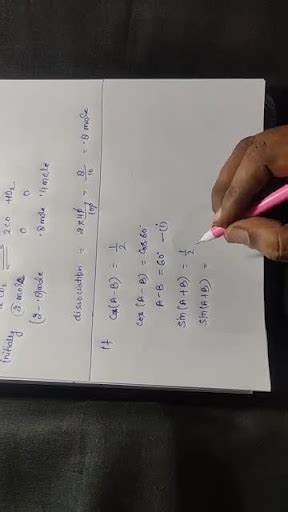 2CO2 ⇌ 2CO + O2
Initially 2 mole 0 0
(2 - ·8) mole ·8 mole ·4 mole
dissociation = 2 × 40/100 = 8/10 = ·8 mole
17
Cos(A-B) = 1/2
cos(A-B) = Cos 60°
A-B = 60° —(1)
Sin(A+B) = 1/2
Sin(A+B) =